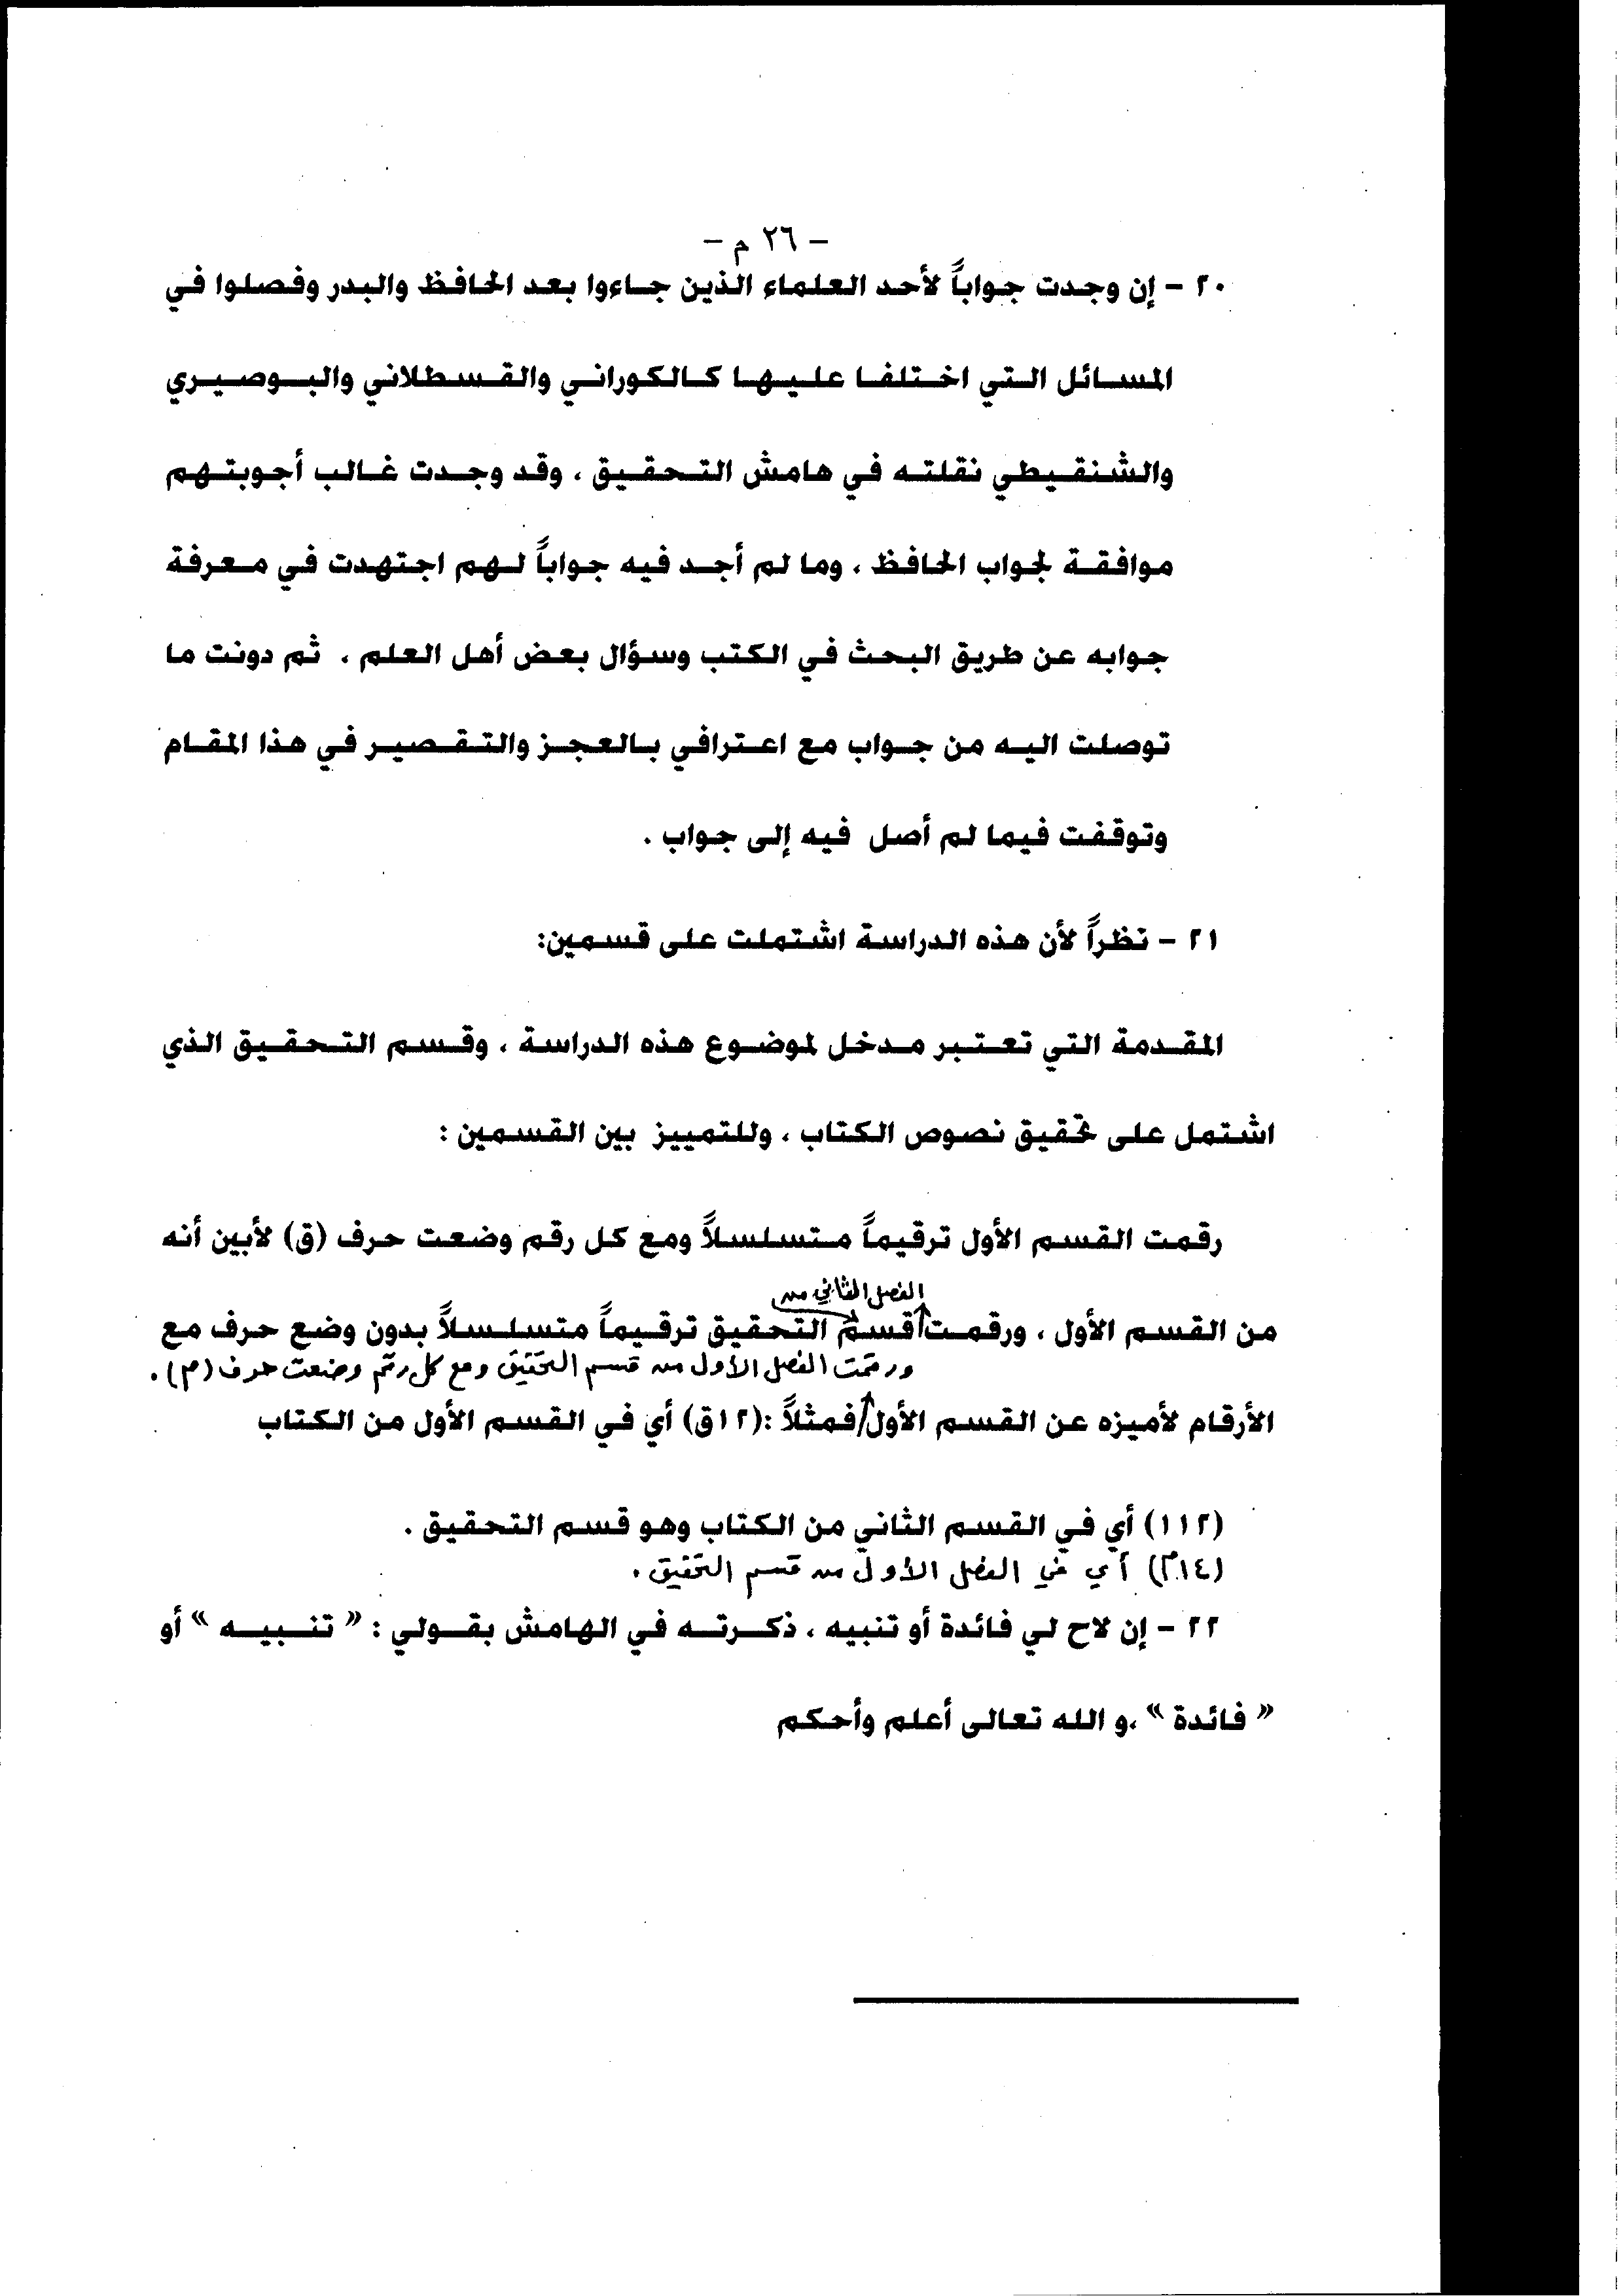 - ٢٦ م -
٢٠ - إن وجدت جواباً لأحد العلماء الذين جاءوا بعد الحافظ والبدر وفصلوا في
المسائل التي اختلفا عليها كالكوراني والقسطلاني والبوصيري
والشنقيطي نقلته في هامش التحقيق ، وقد وجدت غالب أجوبتهم
موافقة لجواب الحافظ ، وما لم أجد فيه جواباً لهم اجتهدت في معرفة
جوابه عن طريق البحث في الكتب وسؤال بعض أهل العلم ، ثم دونت ما
توصلت اليه من جواب مع اعترافي بالعجز والتقصير في هذا المقام
وتوقفت فيما لم أصل فيه إلى جواب .
٢١ - نظراً لأن هذه الدراسة اشتملت على قسمين:
المقدمة التي تعتبر مدخل لموضوع هذه الدراسة ، وقسم التحقيق الذي
اشتمل على تحقيق نصوص الكتاب ، وللتمييز بين القسمين :
رقمت القسم الأول ترقيماً متسلسلاً ومع كل رقم وضعت حرف (ق) لأبين أنه
الفصل الثاني من
من القسم الأول ، ورقمت قسم التحقيق ترقيماً متسلسلاً بدون وضع حرف مع
ورقمت الفصل الأول من قسم التحقيق ومع كل رقم وضعت حرف (م) .
الأرقام لأميزه عن القسم الأول فمثلاً :(١٢ق) أي في القسم الأول من الكتاب
(١١٢) أي في القسم الثاني من الكتاب وهو قسم التحقيق .
(١٤م) أي في الفصل الأول من قسم التحقيق .
٢٢ - إن لاح لي فائدة أو تنبيه ، ذكرته في الهامش بقولي : « تنبيه » أو
« فائدة » ،و الله تعالى أعلم وأحكم